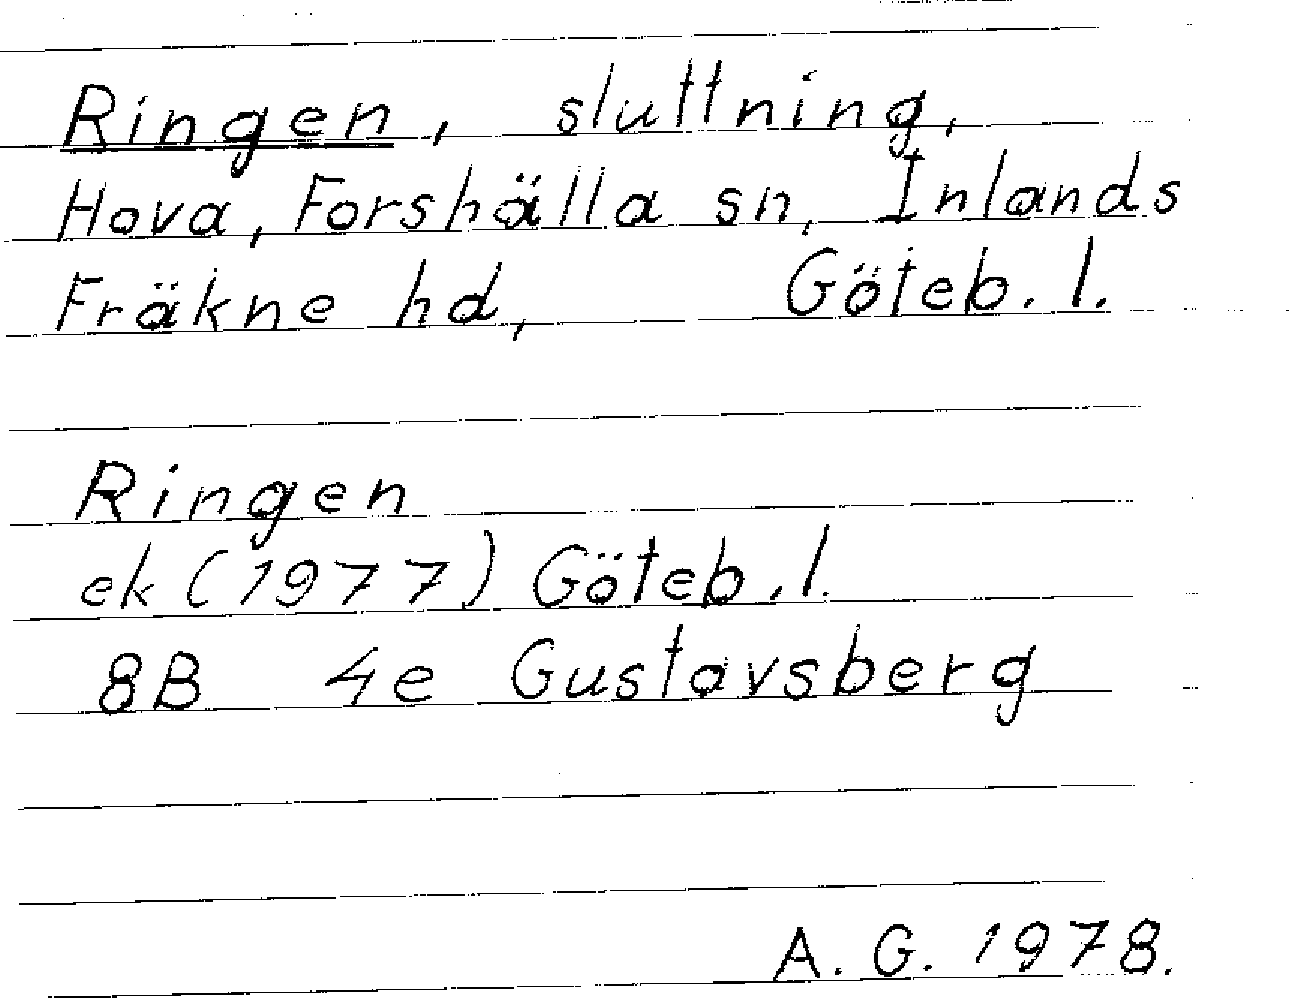 Ringen, sluttning,
Hova, Forshälla sn, Inlands
Fräkne hd, Göteb. l.
Ringen
ek (1977) Göteb. l.
8B 4e Gustavsberg
A. G. 1978.